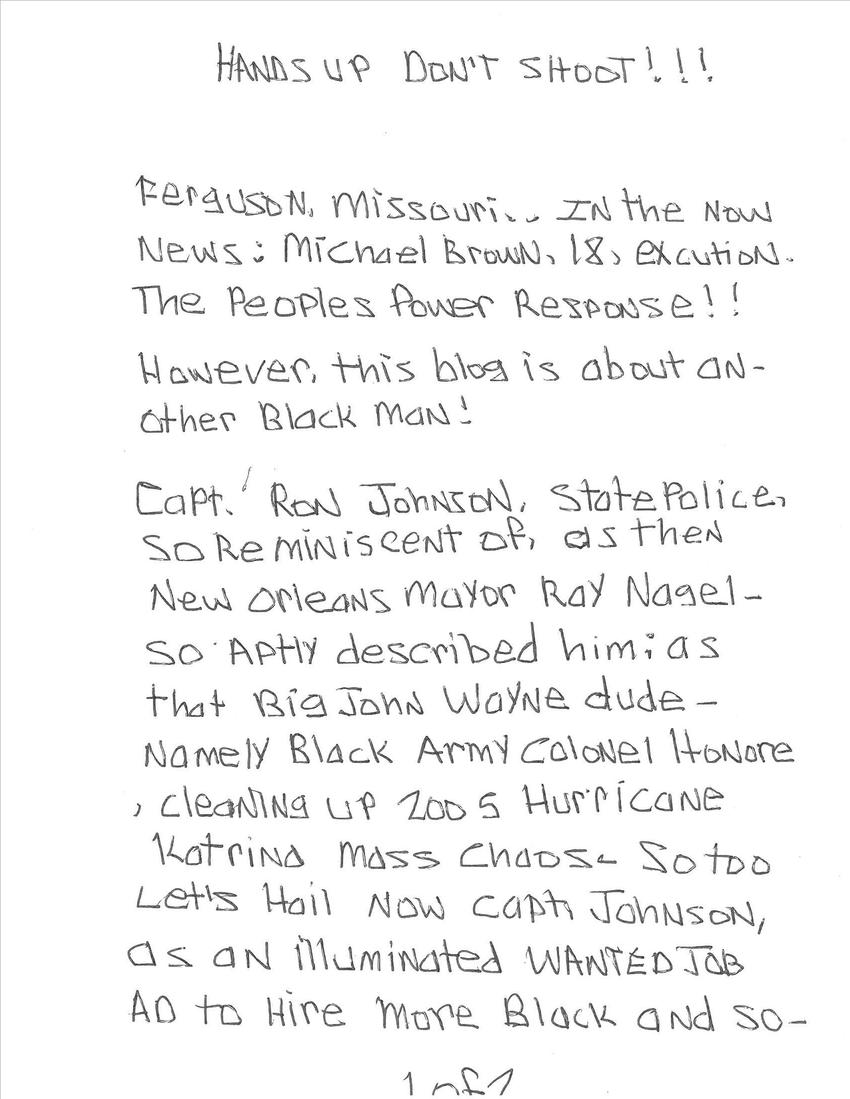 HANDS UP DON'T SHOOT!!!
Ferguson, Missouri.. IN the NOW
News: Michael Brown, 18, excution.
The Peoples Power Response!!
However, this blog is about an-
other Black Man!
Capt. Ron Johnson, State Police,
so Reminiscent of, as then
New Orleans Mayor Ray Nagel-
so Aptly described him; as
that Big John Wayne dude-
Namely Black Army Colonel Honore
, cleaning up 2005 Hurricane
Katrina mass Chaos- So too
Let's Hail Now Capt, Johnson,
as an illuminated WANTED JOB
AD to Hire more Black and so-
1 of